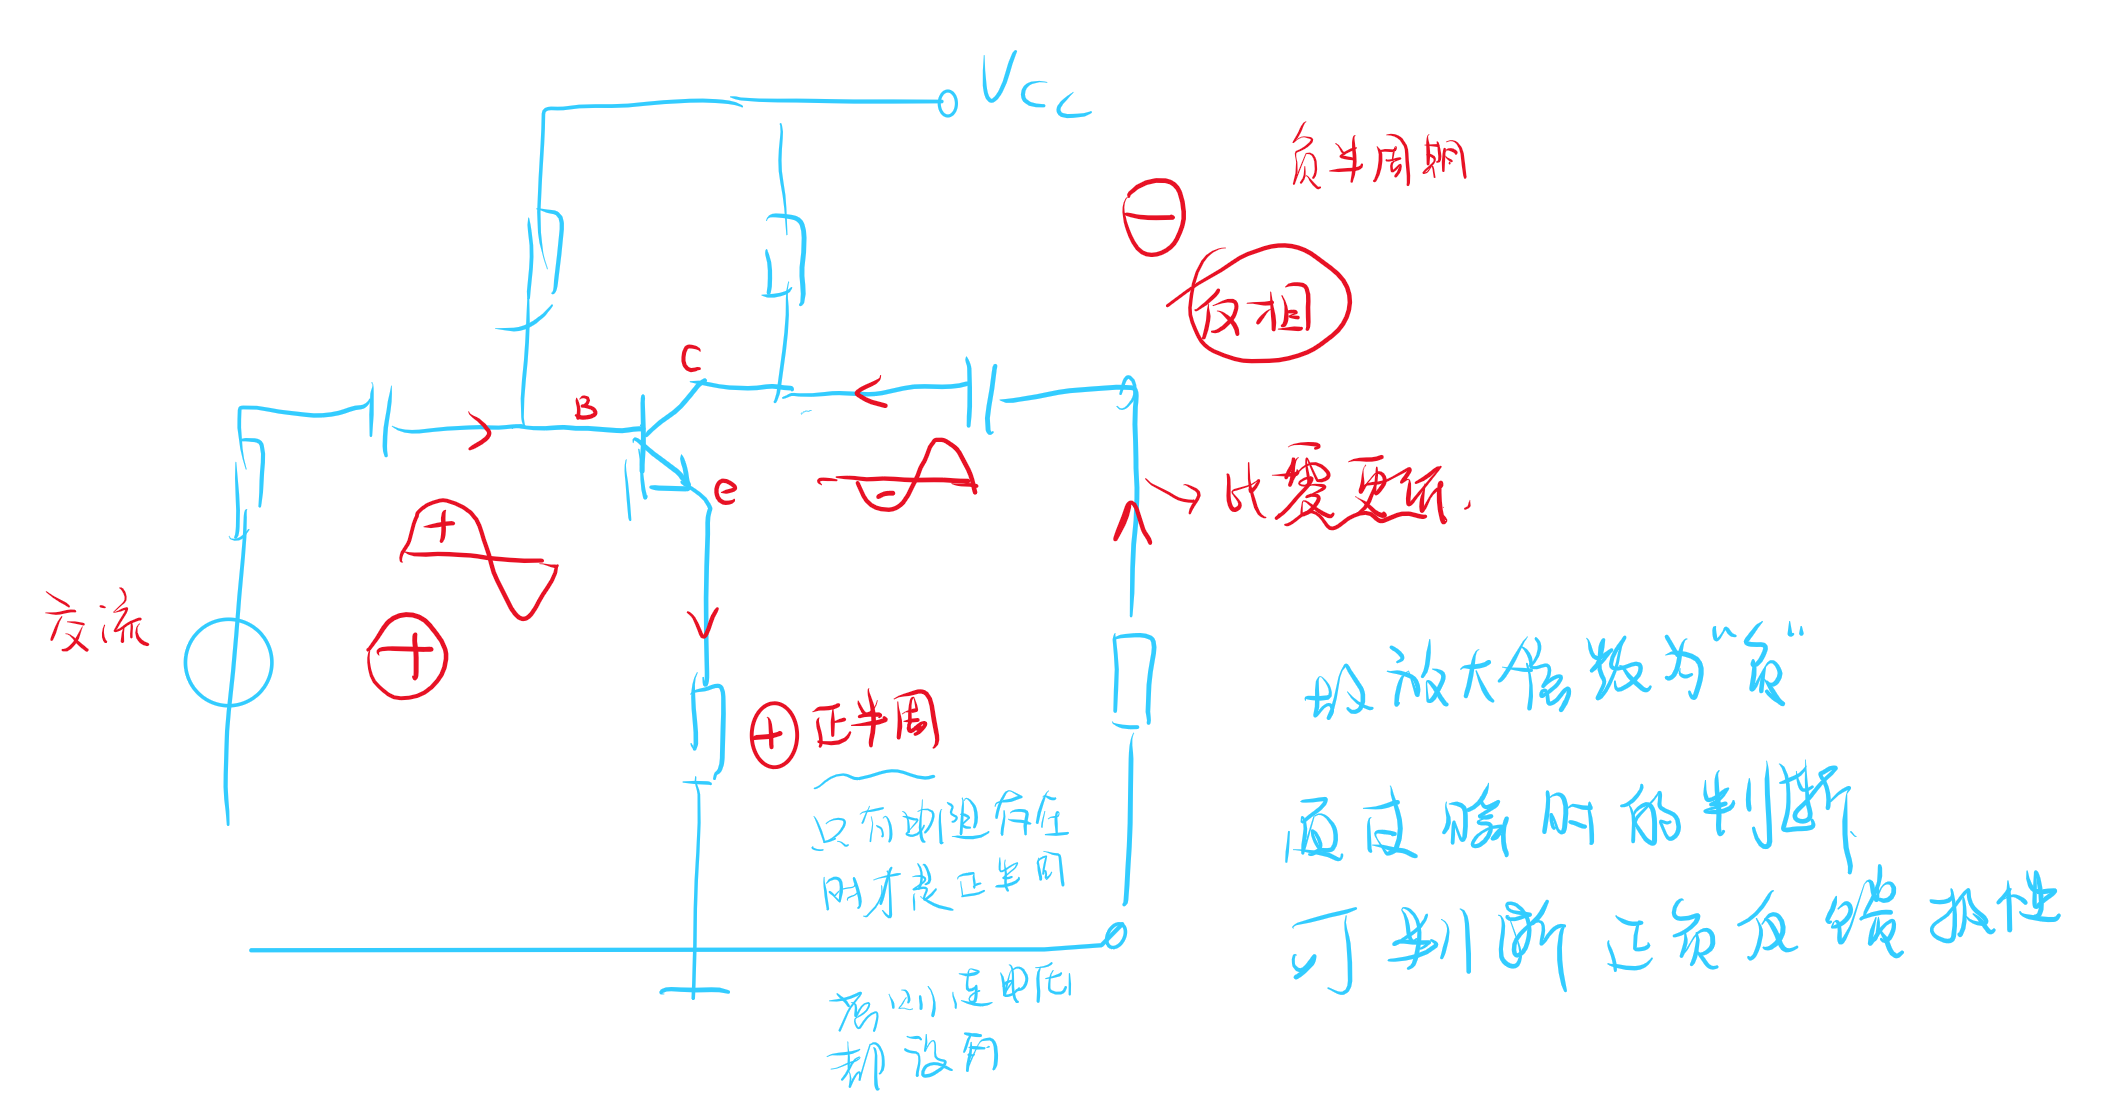 Vcc
负半周期
⊖
反相
C
B
e
比震更低.
交流
+
⊕
-
⊕ 正半周
只有电阻存在
时才是正半周
否则连电压
都没有
故放大倍数为“负”
通过瞬时的判断
可判断正负反馈极性